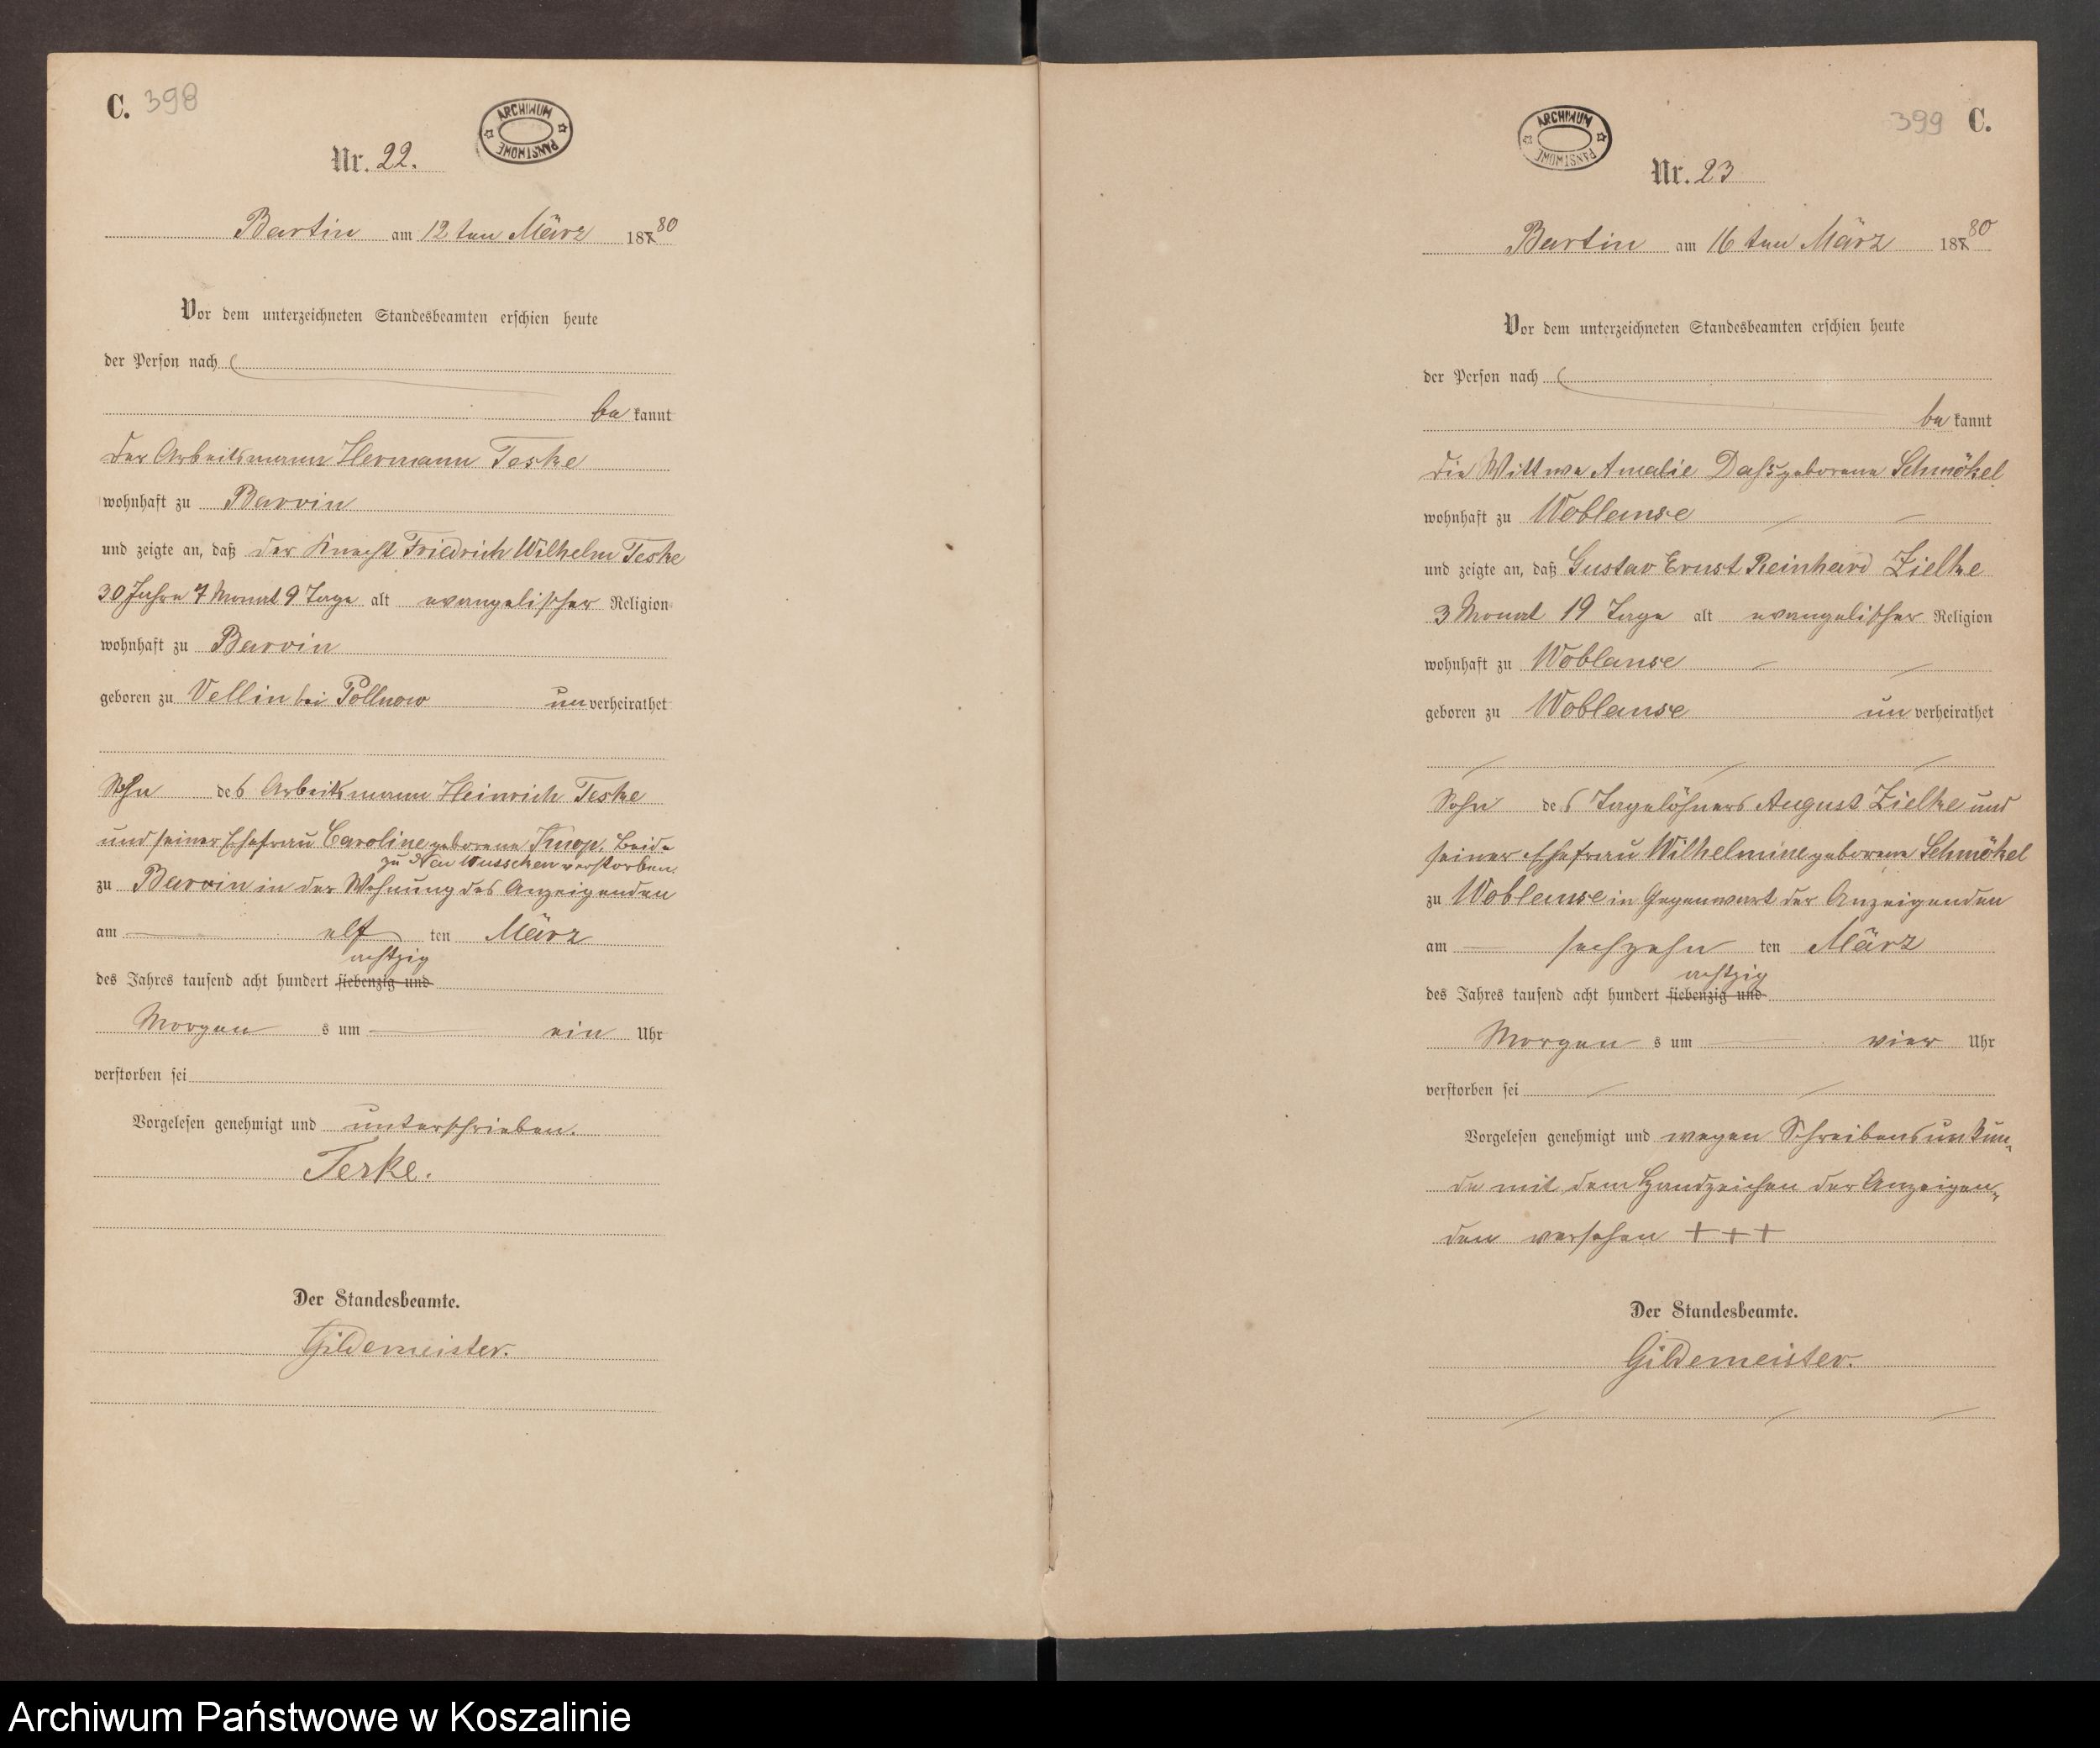 C. 398
ARCHIWUM PAŃSTWOWE
Nr. 22.
Bartin am 12ten März 1880
Vor dem unterzeichneten Standesbeamten erschien heute
der Person nach
be kannt
der Arbeitsmann Hermann Teske
wohnhaft zu Barvin
und zeigte an, daß der Knecht Friedrich Wilhelm Teske
30 Jahre 7 Monat 9 Tage alt evangelischer Religion
wohnhaft zu Barvin
geboren zu Vellin bei Pollnow un verheirathet
Sohn des Arbeitsmann Heinrich Teske
und seiner Ehefrau Caroline geborene Knop, beide
zu Neu Wusseken verstorben.
zu Barvin in der Wohnung des Anzeigenden
am elf ten März
achtzig
des Jahres tausend acht hundert siebenzig und
Morgen s um ein Uhr
verstorben sei
Vorgelesen genehmigt und unterschrieben.
Teske.
Der Standesbeamte.
Gildemeister.
399 C.
ARCHIWUM PAŃSTWOWE
Nr. 23
Bartin am 16ten März 1880
Vor dem unterzeichneten Standesbeamten erschien heute
der Person nach
be kannt
die Wittwe Amalie Dahs geborene Schmökel
wohnhaft zu Woblanse
und zeigte an, daß Gustav Ernst Reinhard Zielke
3 Monat 19 Tage alt evangelischer Religion
wohnhaft zu Woblanse
geboren zu Woblanse un verheirathet
Sohn des Tagelöhners August Zielke und
seiner Ehefrau Wilhelmine geborene Schmökel
zu Woblanse in Gegenwart der Anzeigenden
am sechzehn ten März
achtzig
des Jahres tausend acht hundert siebenzig und
Morgen s um vier Uhr
verstorben sei
Vorgelesen genehmigt und wegen Schreibensunkun-
de mit dem Handzeichen der Anzeigen-
den versehen + + +
Der Standesbeamte.
Gildemeister.
Archiwum Państwowe w Koszalinie